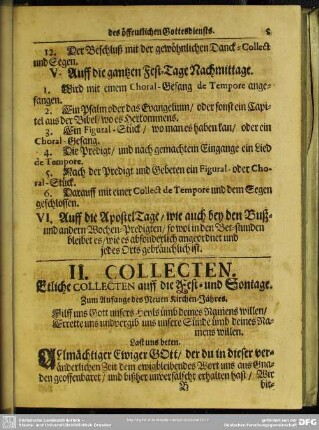 des öffentlichen Gottesdiensts. 5
12. Der Beschluß mit der gewöhnlichen Danck-Collect
und Segen.
V. Auff die gantzen Fest-Tage Nachmittage.
1. Wird mit einem Choral-Gesang de Tempore ange-
fangen.
2. Ein Psalm oder das Evangelium / oder sonst ein Capi-
tel aus der Bibel / wo es Herkommens.
3. Ein Figural-Stück / wo man es haben kan / oder ein
Choral-Gesang.
4. Die Predigt / und nach gemachtem Eingange ein Lied
de Tempore.
5. Nach der Predigt und Gebeten ein Figural- oder Cho-
ral-Stück.
6. Darauff mit einer Collect de Tempore und dem Segen
geschlossen.
VI. Auff die Apostel Tage / wie auch bey den Buß-
und andern Wochen-Predigten / so wol in den Bet-stunden
bleibet es / wie es absonderlich angeordnet und
jedes Orts gebräuchlich ist.
II. COLLECTEN.
Etliche COLLECTEN auff die Fest- und Sontage.
Zum Anfange des Neuen Kirchen-Jahres.
Hilff uns Gott unsers Heyls umb deines Namens willen /
Errette uns und vergib uns unsere Sünde umb deines Na-
mens willen.
Last uns beten.
Allmächtiger Ewiger GOtt / der du in dieser ver-
änderlichen Zeit dein ewigbleibendes Wort uns aus Gna-
den geoffenbaret / und bißher unverfälscht erhalten hast / Wir
B bit-